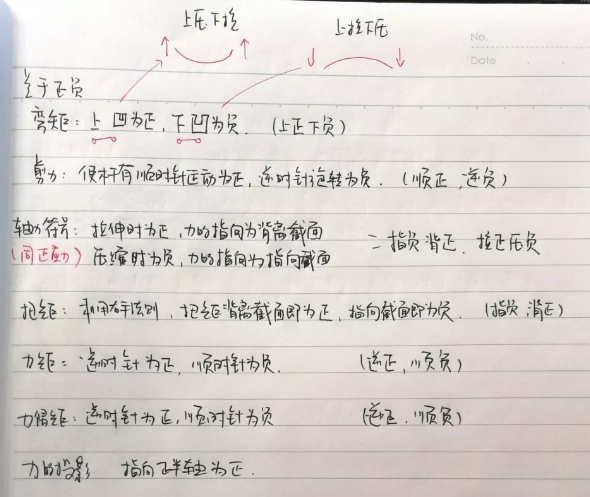 上压下拉
上拉下压
No.
Date
关于正负
弯矩：上凹为正，下凹为负．（上正下负）
剪力：使杆有顺时针运动为正，逆时针旋转为负．（顺正，逆负）
轴力符号：拉伸时为正，力的指向为背离截面
（同正应力）压缩时为负，力的指向为指向截面
=指负背正．拉正压负
扭矩：利用右手法则，扭矩背离截面即为正，指向截面即为负．（指负，背正）
力矩：逆时针为正，顺时针为负． （逆正，顺负）
力偶矩：逆时针为正，顺时针为负 （逆正．顺负）
力的投影 指向正半轴为正．